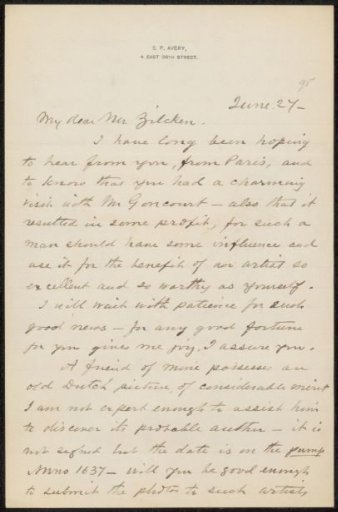 S. P. AVERY,
4 EAST 38TH STREET.
95
June 27-
My dear Mr Zilcken.
I have long been hoping
to hear from you, from Paris, and
to know that you had a charming
visit with Mr Goncourt - also that it
resulted in some profit, for such a
man should have some influence and
use it for the benefit of an artist so
excellent and so worthy as yourself.
I will wait with patience for such
good news - for any good fortune
for you gives me joy, I assure you.
A friend of mine possesses an
old Dutch picture, of considerable merit
I am not expert enough to assist him
to discover its probable author - it is
not signed but the date is on the pump
Anno 1637 - will you be good enough
to submit the photo to such artists